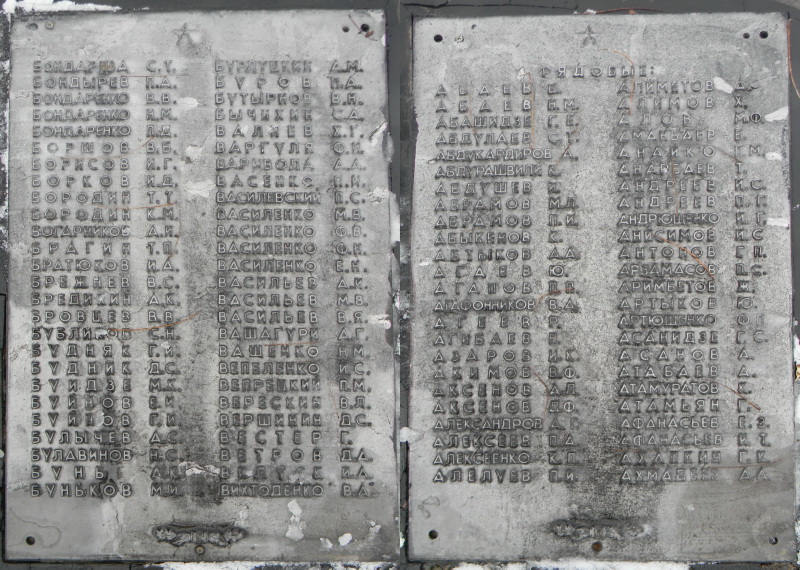 БОНДАРЕВА С.Т.
БОНДЫРЕВ П.Д.
БОНДАРЕНКО В.В.
БОНДАРЕНКО Н.М.
БОНДАРЕНКО П.Д.
БОРШОВ В.Б.
БОРИСОВ И.Г.
БОРКОВ И.Д.
БОРОДИН Т.Т.
БОРОДИН К.М.
БОГАРНИКОВ А.Н.
БРАГИН Т.П.
БРАТЮКОВ И.А.
БРЕЖНЕВ В.С.
БРЕДИКИН А.К.
БРОВЦЕВ В.В.
БУБЛИКОВ С.Н.
БУДНЯК Г.И.
БУДНИК Д.С.
БУИДЗЕ М.К.
БУЙНОВ В.И.
БУЙНОВ Г.И.
БУЛЫЧЕВ А.С.
БУЛАВИНОВ Н.С.
БУНЬ
БУНЬКОВ М.И.
БУРЛУЦКИЙ А.М.
БУРОВ П.А.
БУТЫРКОВ В.Н.
БЫЧИХИН С.А.
ВАЛИЕВ Х.Г.
ВАРГУЛЯ Ф.И.
ВАРИВОДА А.А.
ВАСЕНКО П.И.
ВАСИЛЕВСКИЙ П.С.
ВАСИЛЕНКО М.В.
ВАСИЛЕНКО Ф.В.
ВАСИЛЕНКО Ф.К.
ВАСИЛЕНКО Е.Н.
ВАСИЛЬЕВ А.К.
ВАСИЛЬЕВ М.В.
ВАСИЛЬЕВ В.Я.
ВАШАГУРИ А.Г.
ВАЩЕНКО Н.М.
ВЕПЕЛЕНКО И.С.
ВЕПРЕЦКИЙ П.М.
ВЕРЕСКИН В.Л.
ВЕРШИНИН Д.С.
ВЕСТЕР Г.
ВЕТРОВ Д.А.
И.А.
ВИХТОДЕНКО В.А.
РЯДОВЫЕ:
АБАЕВ Б.
АБАЕВ Б.М.
АБАШИДЗЕ Г.Е.
АБДУЛАЕВ С.Т.
АБДУКАРДИРОВ А.
АБДУРАШВИЛИ К.
АБДУШЕВ И.
АБРАМОВ М.Д.
АБРАМОВ П.И.
АБЫКЕНОВ К.
АВТЫКОВ А.А.
АГАЕВ Ю.
АГАПОВ П.П.
АГАФОННИКОВ В.А.
АГЕЕВ Г.
АГИБАЕВ Г.
АЗАРОВ И.К.
АКИМОВ В.Ф.
АКСЕНОВ А.Д.
АКСЕНОВ Д.Ф.
АЛЕКСАНДРОВ А.Г.
АЛЕКСЕЕВ П.А.
АЛЕКСЕЕНКО К.П.
АЛЕЛУЕВ П.И.
АЛИМЕТОВ
АЛИМОВ Х.
М.Ф.
АМАНБАЕВ Б.
АНАНКО Г.М.
АНАРБАЕВ Т.
АНДРЕЕВ И.С.
АНДРЕЕВ П.П.
АНДРЮЩЕНКО И.Т.
АНИСИМОВ И.С.
АНТОНОВ Г.П.
АРБАМАСОВ П.С.
АРИМБЕТОВ Ж.
АРТЫКОВ Ю.
АРТЮШЕНКО
АСАНИДЗЕ Г.С.
АСАНОВ А.
АТАБАЕВ А.
АТАМУРАТОВ К.
АТАМЬЯН Г.
АФАНАСЬЕВ Е.З.
АФАНАСЬЕВ И.Т.
АХАПКИН Г.К.
А.А.